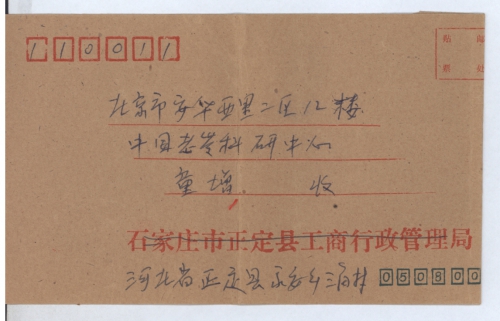 110011
贴 邮
票 处
北京市安华西里二区12楼
中国老龄科研中心
童增 收
石家庄市正定县工商行政管理局
河北省正定县永安乡三角村
050800